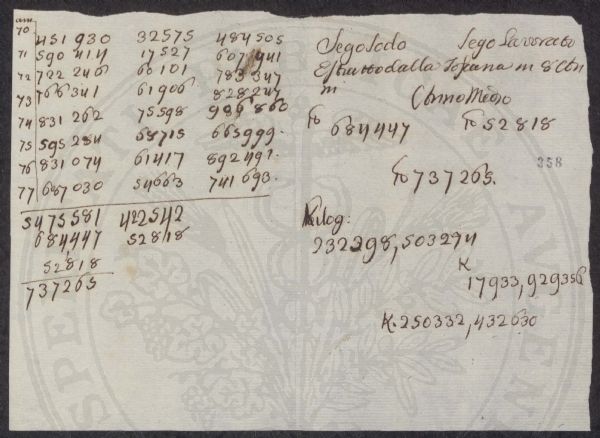 ann
70 451 930 32575 484505
71 590 414 17527 607941
72 722 246 60101 782347
73 766 341 61906 828247
74 831 262 75598 906 860
75 595 284 68715 663999.
76 831 074 61417 892491.
77 687 030 54663 741 693.
5475581 422542
684447 52818
52818
737265
Sego Sodo Sego Lavorato
Estratto dalla Toscana in 8 Ann
Anno Medio
684447 52818
358
737265.
Kilog:
232398,503274
K
17933,929356
K. 250332,432630